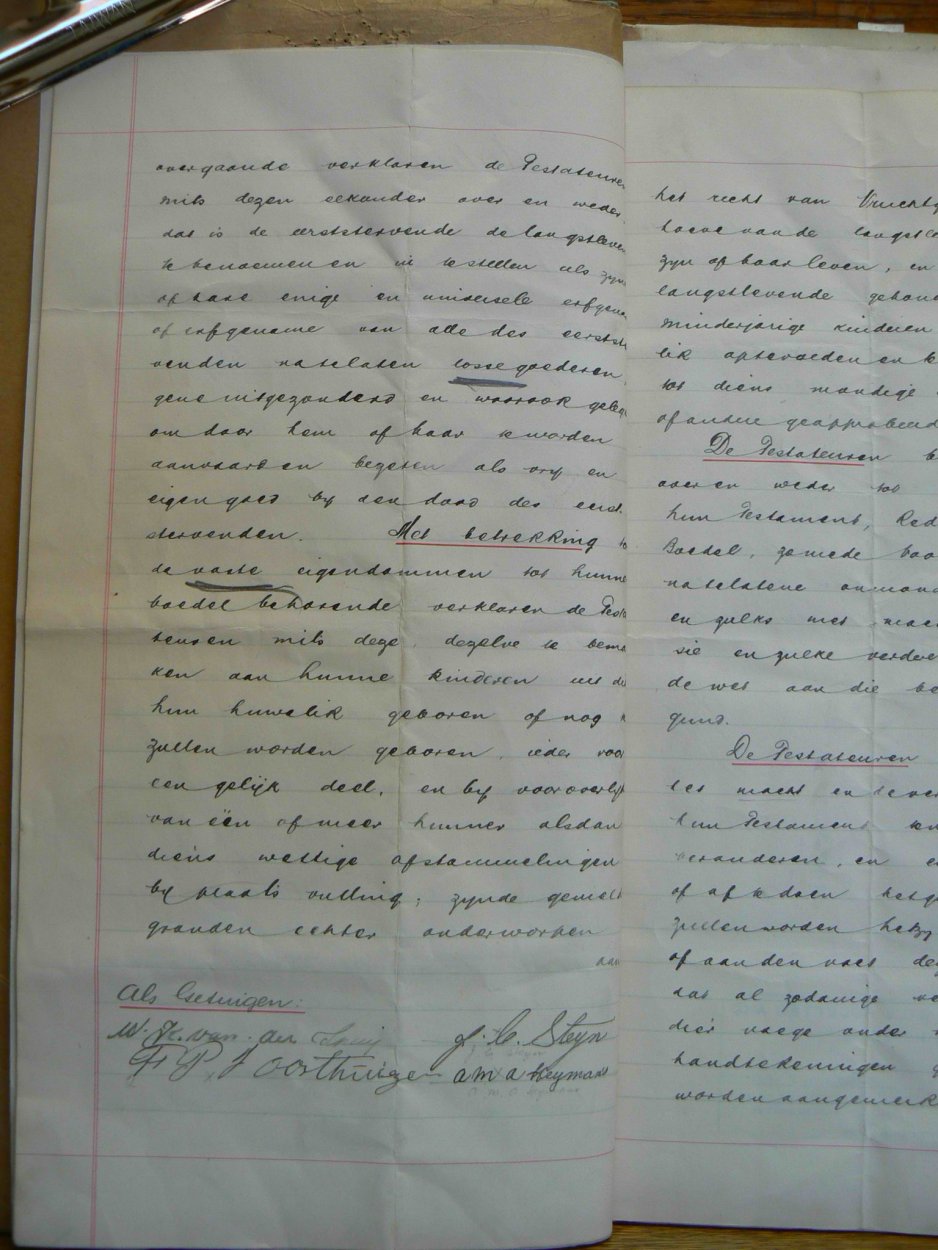 TAIWAN
overgaande verklaren de Testateuren
mits dezen elkander over en weder
dat is de eerststervende de langstleven
te benoemen en in te stellen als zyn
of hare enige en universele erfgena
of erfgename van alle des eerstst
venden natelaten losse goederen
gene uitgezonderd en waarook geleg
om door hem of haar te worden
aanvaard en bezeten als vry en
eigen goed by den dood des eerst
stervenden. Met betrekking to
de vaste eigendommen tot hunne
boedel behorende verklaren de Testa
teuren mits deze, dezelve te bema
ken aan hunne kinderen uit dit
hun huwelik geboren of nog
zullen worden geboren, ieder voor
een gelijk deel, en by vooroverlij
van één of meer hunner alsdan
diens wettige afstammelingen
by plaatsvulling; zynde gemelde
gronden echter onderworpen
aan
Als Getuigen:
W. K. van der
J. C. Steyn
F P J Oosthuizen
a m a Heymans
het recht van Vruchtg
hoeve van de langstle
zyn of haar leven, en
langstlevende gehou
minderjarige kinderen
lik optevoeden en t
tot diens mondige
of andere geapprobeerd
De Testateuren b
over en weder tot
hun Testament, Red
Boedel, zomede voo
natelatene onmond
en zulks met mac
sie en zulke verdere
de wet aan die be
gund.
De Testateuren
les macht en de ver
hun Testament te
veranderen, en e
of af te doen hetg
zullen worden hetzy
of aan den voet dez
dat al zodanige ve
dier voege onder
handtekeningen g
worden aangemerk